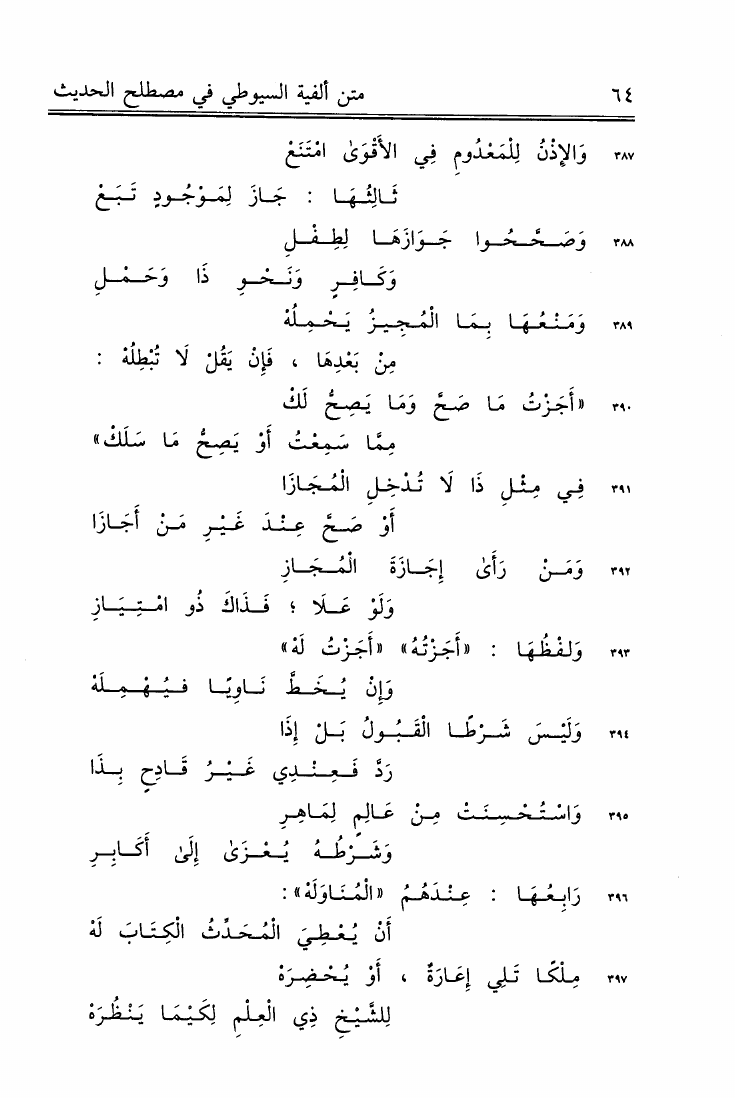 ٦٤ متن ألفية السيوطي في مصطلح الحديث
٣٨٧ وَالإِذْنُ لِلْمَعْدُومِ فِي الأَقْوَىٰ امْتَنَعْ
ثَالِثُهَا : جَازَ لِمَوْجُودٍ تَبَعْ
٣٨٨ وَصَحَّحُوا جَوَازَهَا لِطِفْلِ
وَكَافِرٍ وَنَحْوِ ذَا وَحَمْلِ
٣٨٩ وَمَنْعُهَا بِمَا الْمُجِيزُ يَحْمِلُهْ
مِنْ بَعْدِهَا ، فَإِنْ يَقُلْ لَا تُبْطِلُهْ :
٣٩٠ «أَجَزْتُ مَا صَحَّ وَمَا يَصِحُّ لَكْ
مِمَّا سَمِعْتُ أَوْ يَصِحُّ مَا سَلَكْ»
٣٩١ فِي مِثْلِ ذَا لَا تُدْخِلِ الْمُجَازَا
أَوْ صَحَّ عِنْدَ غَيْرِ مَنْ أَجَازَا
٣٩٢ وَمَنْ رَأَىٰ إِجَازَةَ الْمُجَازِ
وَلَوْ عَلَا ؛ فَذَاكَ ذُو امْتِيَازِ
٣٩٣ وَلَفْظُهَا : «أَجَزْتُهُ» «أَجَزْتُ لَهْ»
وَإِنْ يُخَطَّ نَاوِيًا فَيُهْمِلَهْ
٣٩٤ وَلَيْسَ شَرْطًا الْقَبُولُ بَلْ إِذَا
رَدَّ فَعِنْدِي غَيْرُ قَادِحٍ بِذَا
٣٩٥ وَاسْتُحْسِنَتْ مِنْ عَالِمٍ لِمَاهِرِ
وَشَرْطُهُ يُعْزَىٰ إِلَىٰ أَكَابِرِ
٣٩٦ رَابِعُهَا : عِنْدَهُمُ «الْمُنَاوَلَهْ» :
أَنْ يُعْطِيَ الْمُحَدِّثُ الْكِتَابَ لَهْ
٣٩٧ مِلْكًا تَلِي إِعَارَةٌ ، أَوْ يُحْضِرَهْ
لِلشَّيْخِ ذِي الْعِلْمِ لِكَيْمَا يَنْظُرَهْ